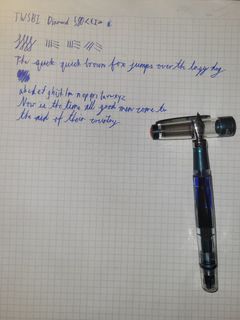 TWSBI Diamond 580
The quick quick brown fox jumps over the lazy dog
abcdefghijklmnopqrstuvwxyz
Now is the time all good men come to
the aid of their country